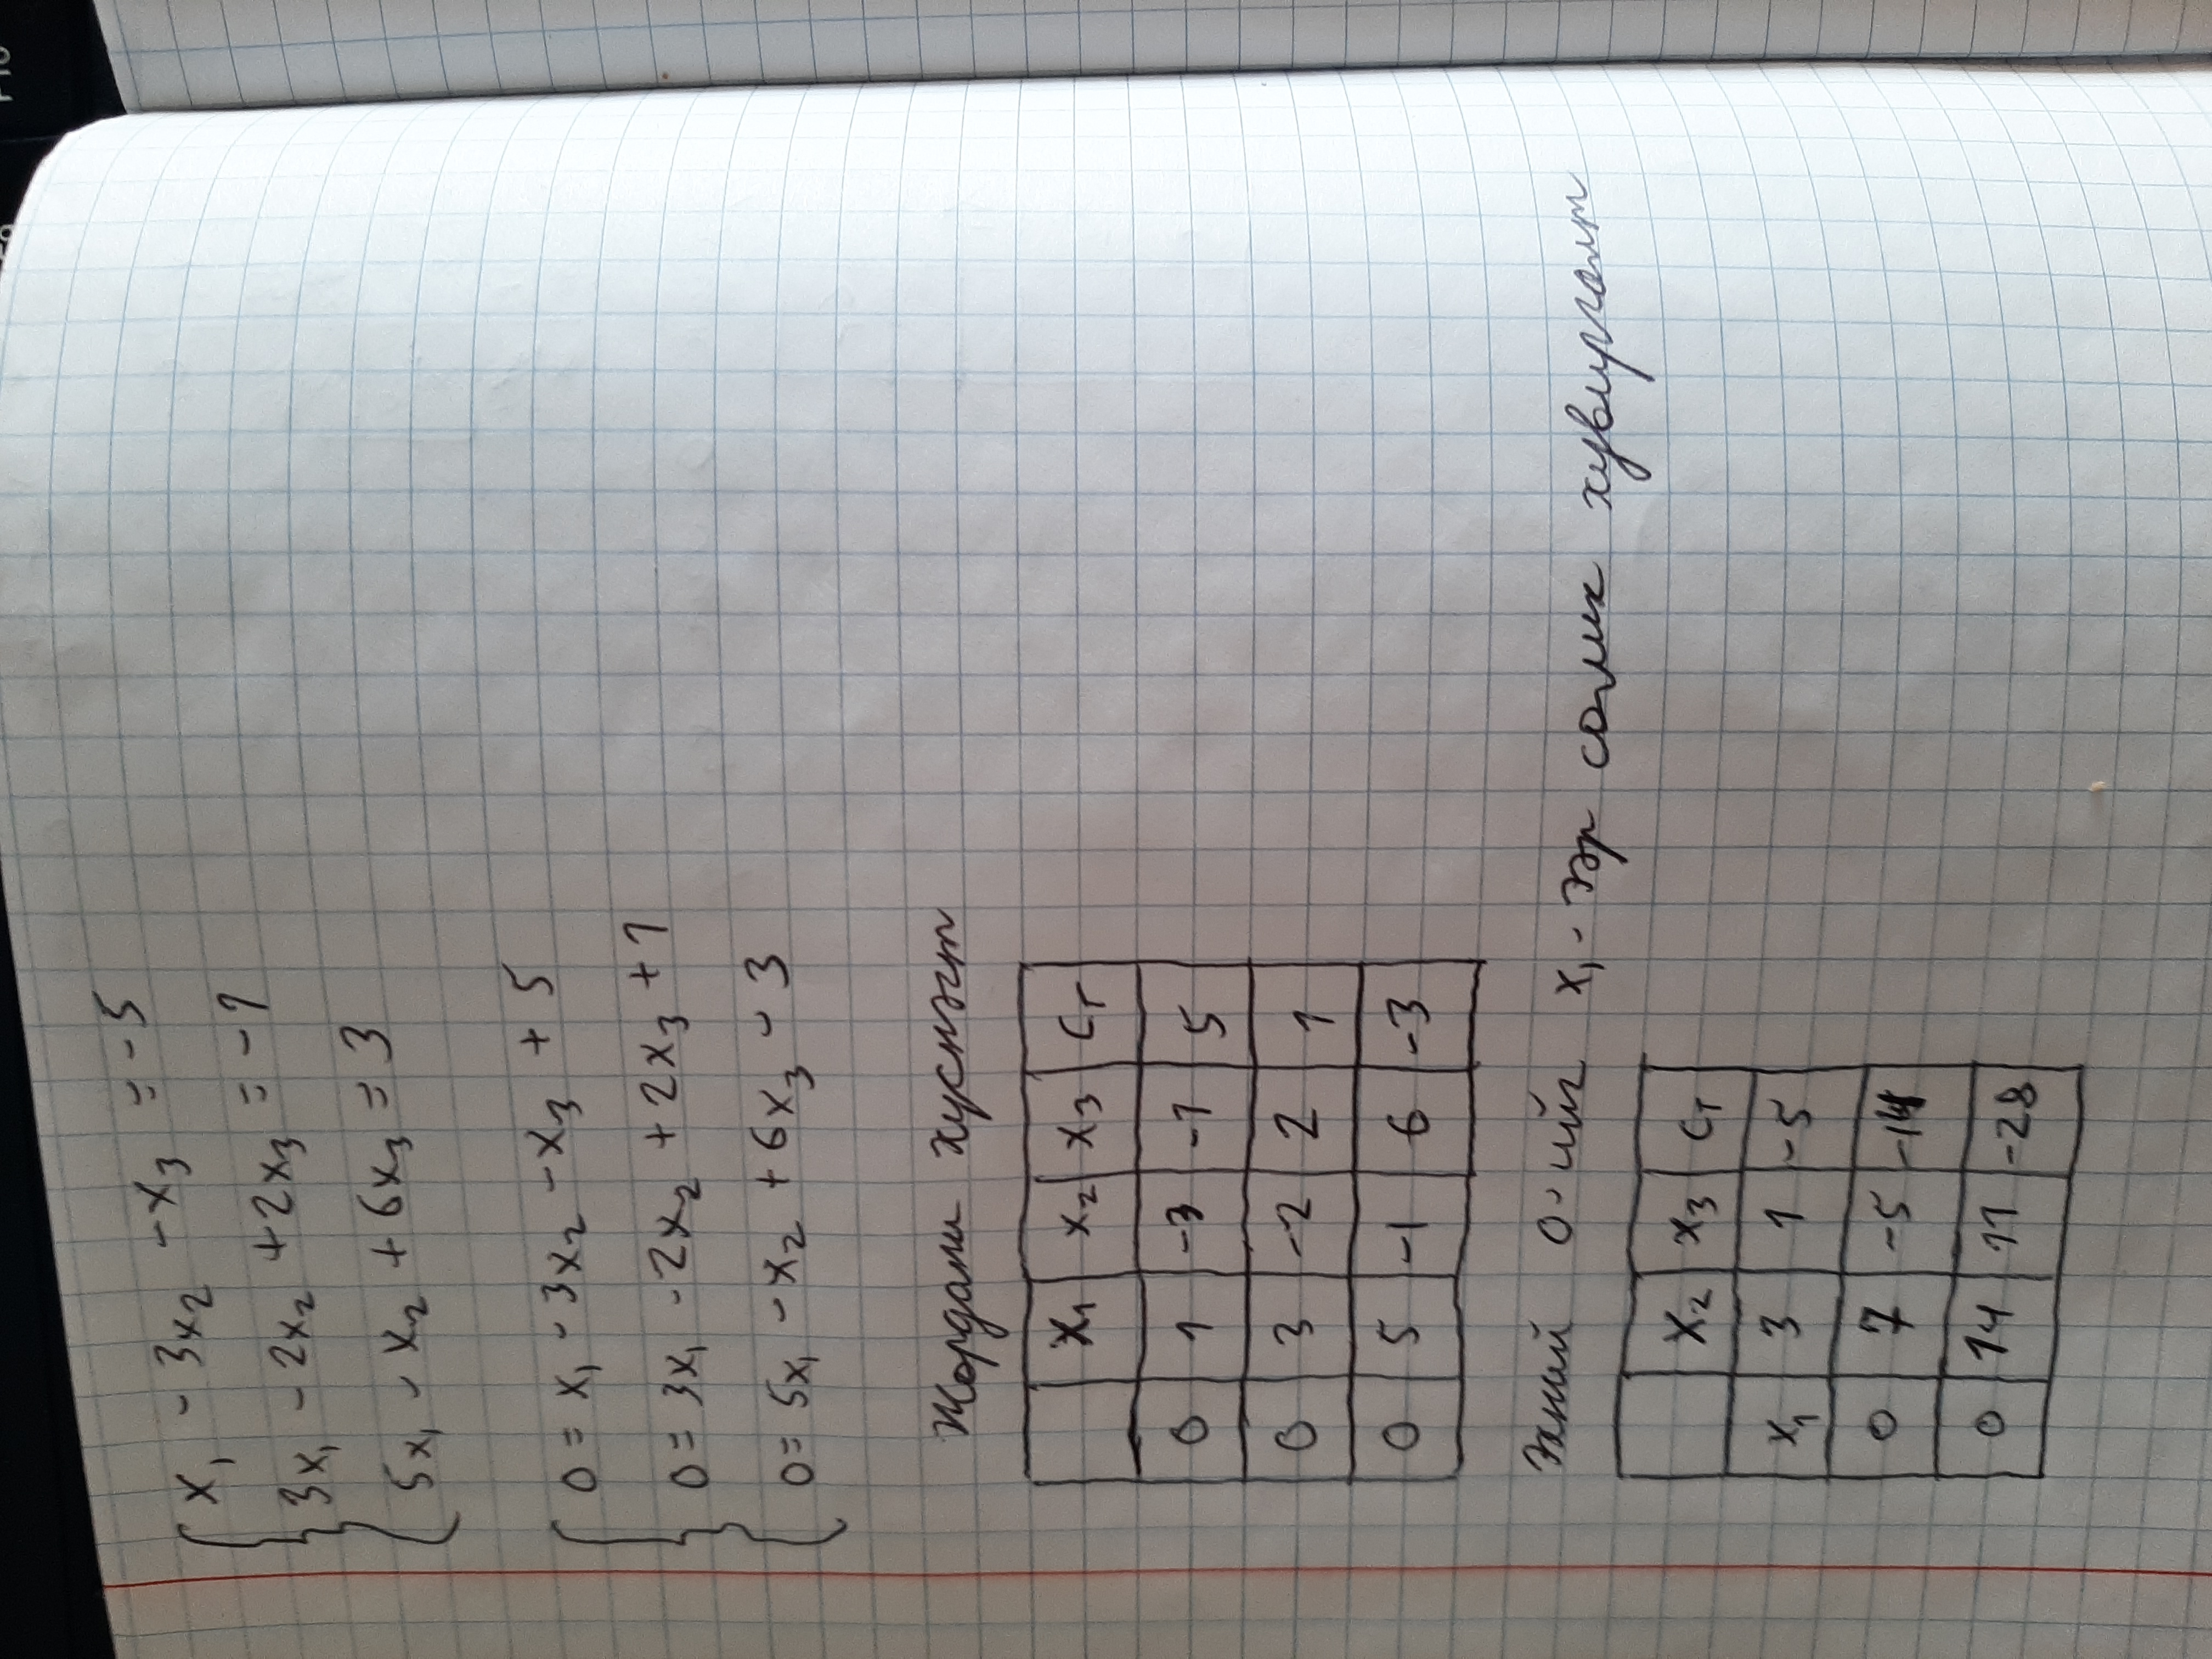 x₁ - 3x₂ - x₃ = -5
3x₁ - 2x₂ + 2x₃ = -1
5x₁ - x₂ + 6x₃ = 3
0 = x₁ - 3x₂ - x₃ + 5
0 = 3x₁ - 2x₂ + 2x₃ + 1
0 = 5x₁ - x₂ + 6x₃ - 3
Жордани хүснэгт
x₁ x₂ x₃ Cг
0 1 -3 -1 5
0 3 -2 2 1
0 5 -1 6 -3
Эхний 0-ийг x₁-ээр солих хувиргалт
x₂ x₃ Cг
x₁ 3 1 -5
0 7 -5 -14
0 14 11 -28